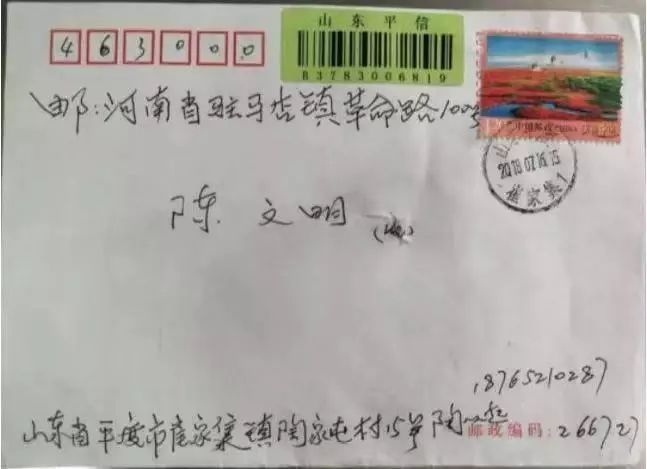 山东平信
463000
83783006819
邮:河南省驻马店镇革命路100号
中国邮政 CHINA
山
2018 07 16 15
崔家集1
陈文明
(收)
18765210287
山东省平度市崔家集镇陶家屯村15号陶
邮政编码:266727